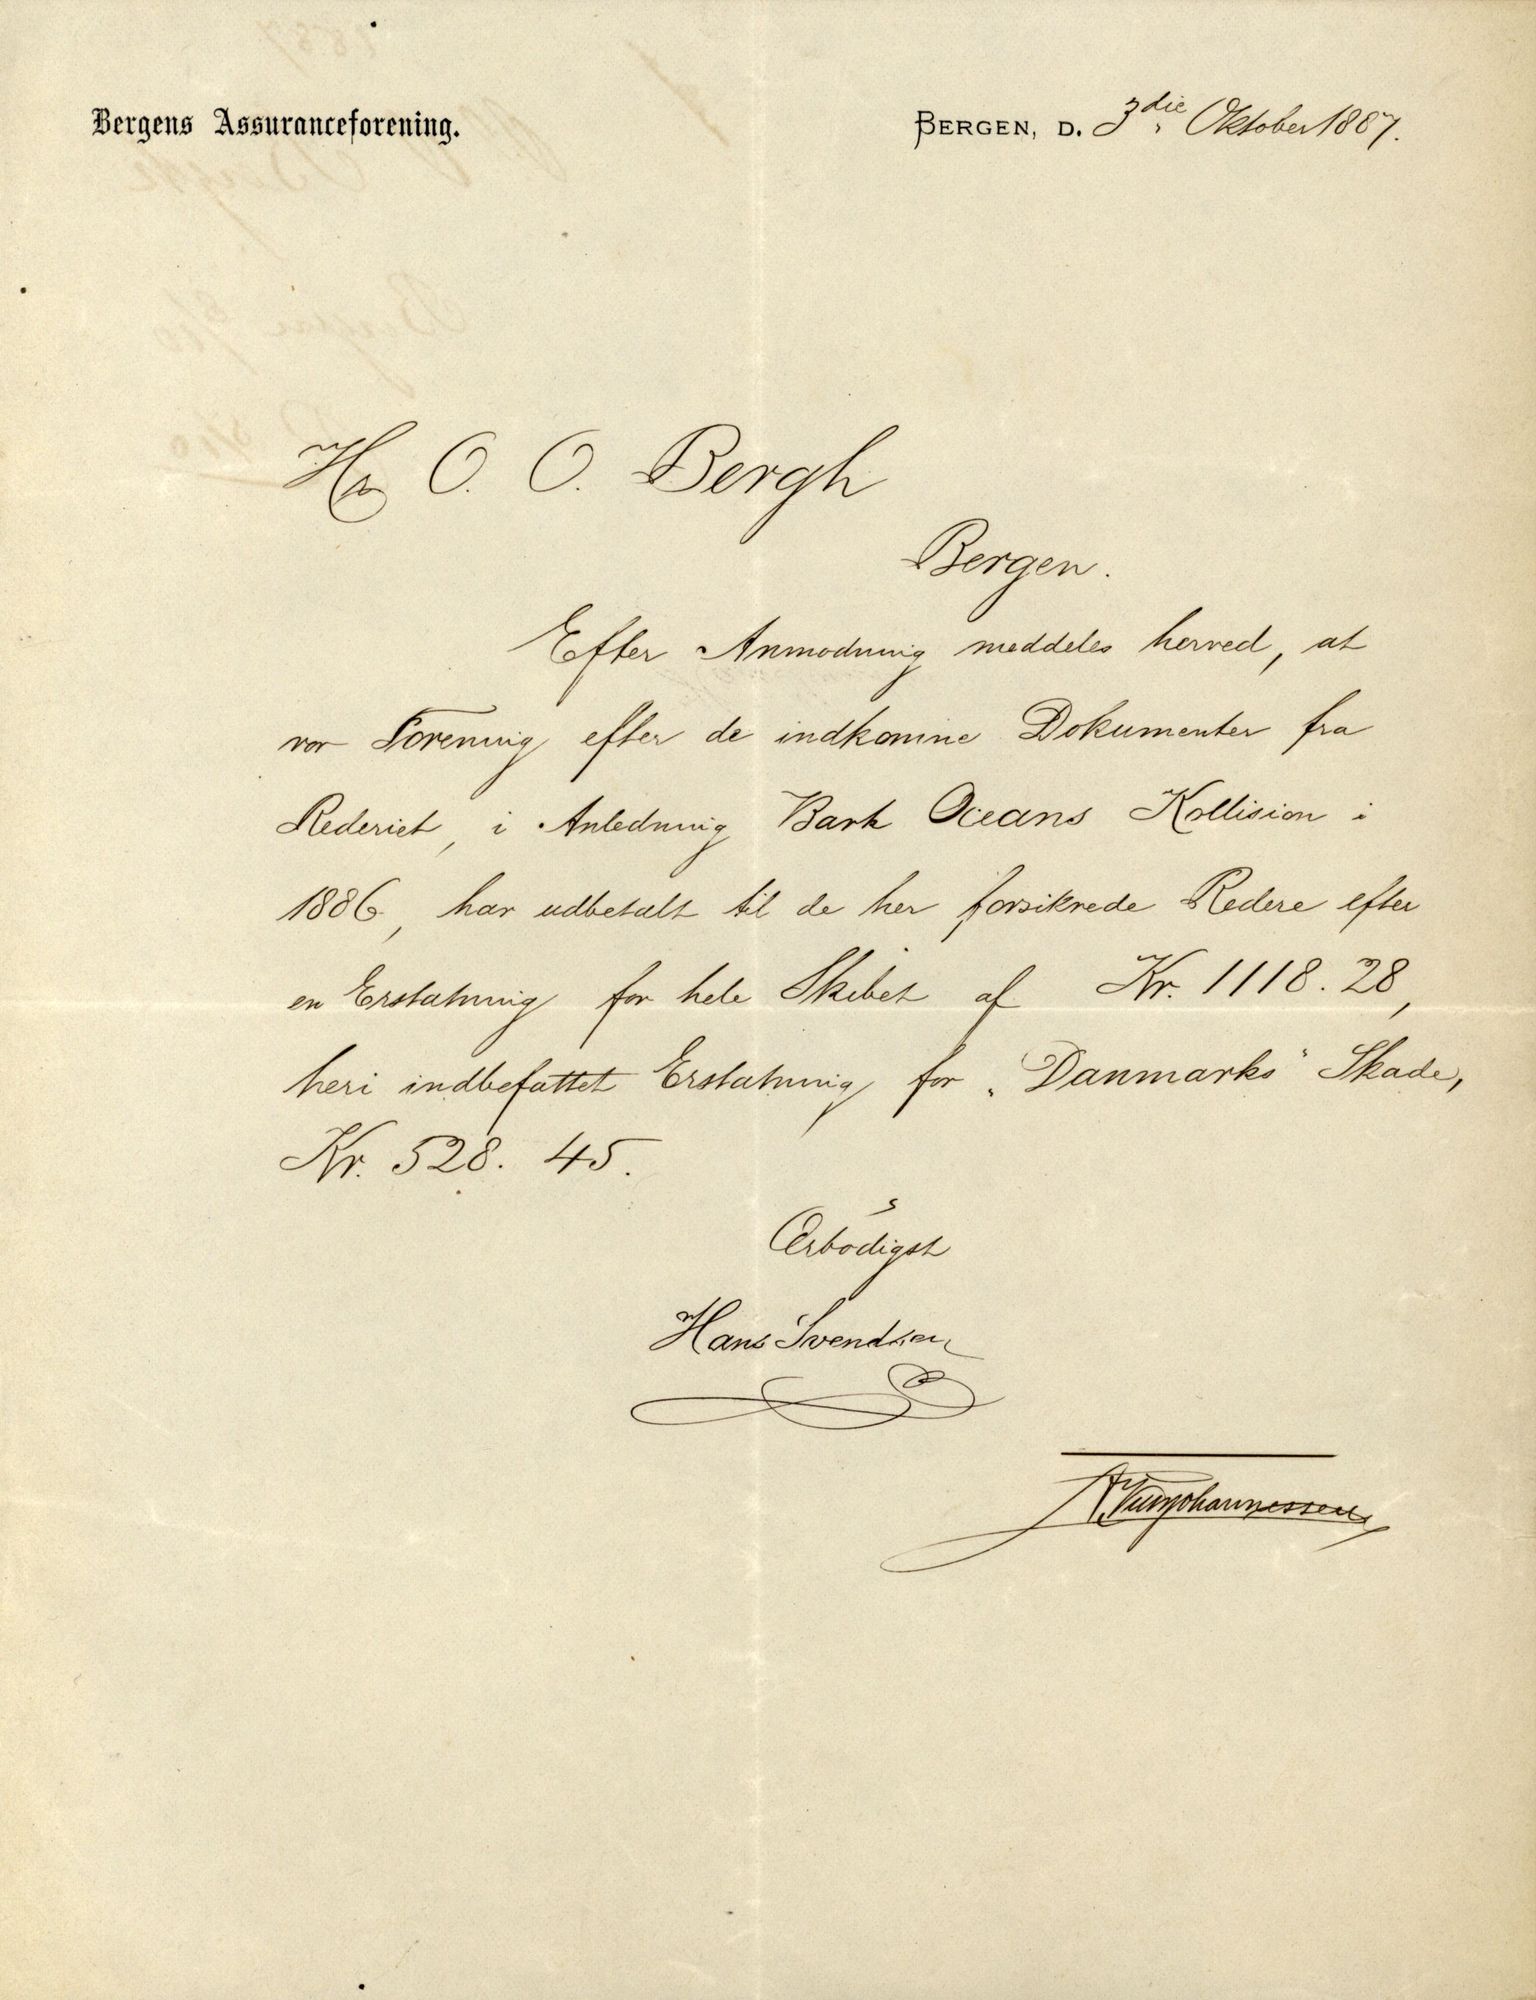 Bergens Assuranceforening.
BERGEN, D. 3die Oktober 1887.
Hr O. O. Bergh
Bergen.
Efter Anmodning meddeles herved, at
vor Forening efter de indkomne Dokumenter fra
Rederiet, i Anledning Bark Oceans Kollision i
1886, har udbetalt til de her forsikrede Redere efter
en Erstatning for hele Skibet af Kr. 1118. 28,
heri indbefattet Erstatning for „Danmarks" Skade,
Kr. 528. 45.
Ærbødigst
Hans Svendsen